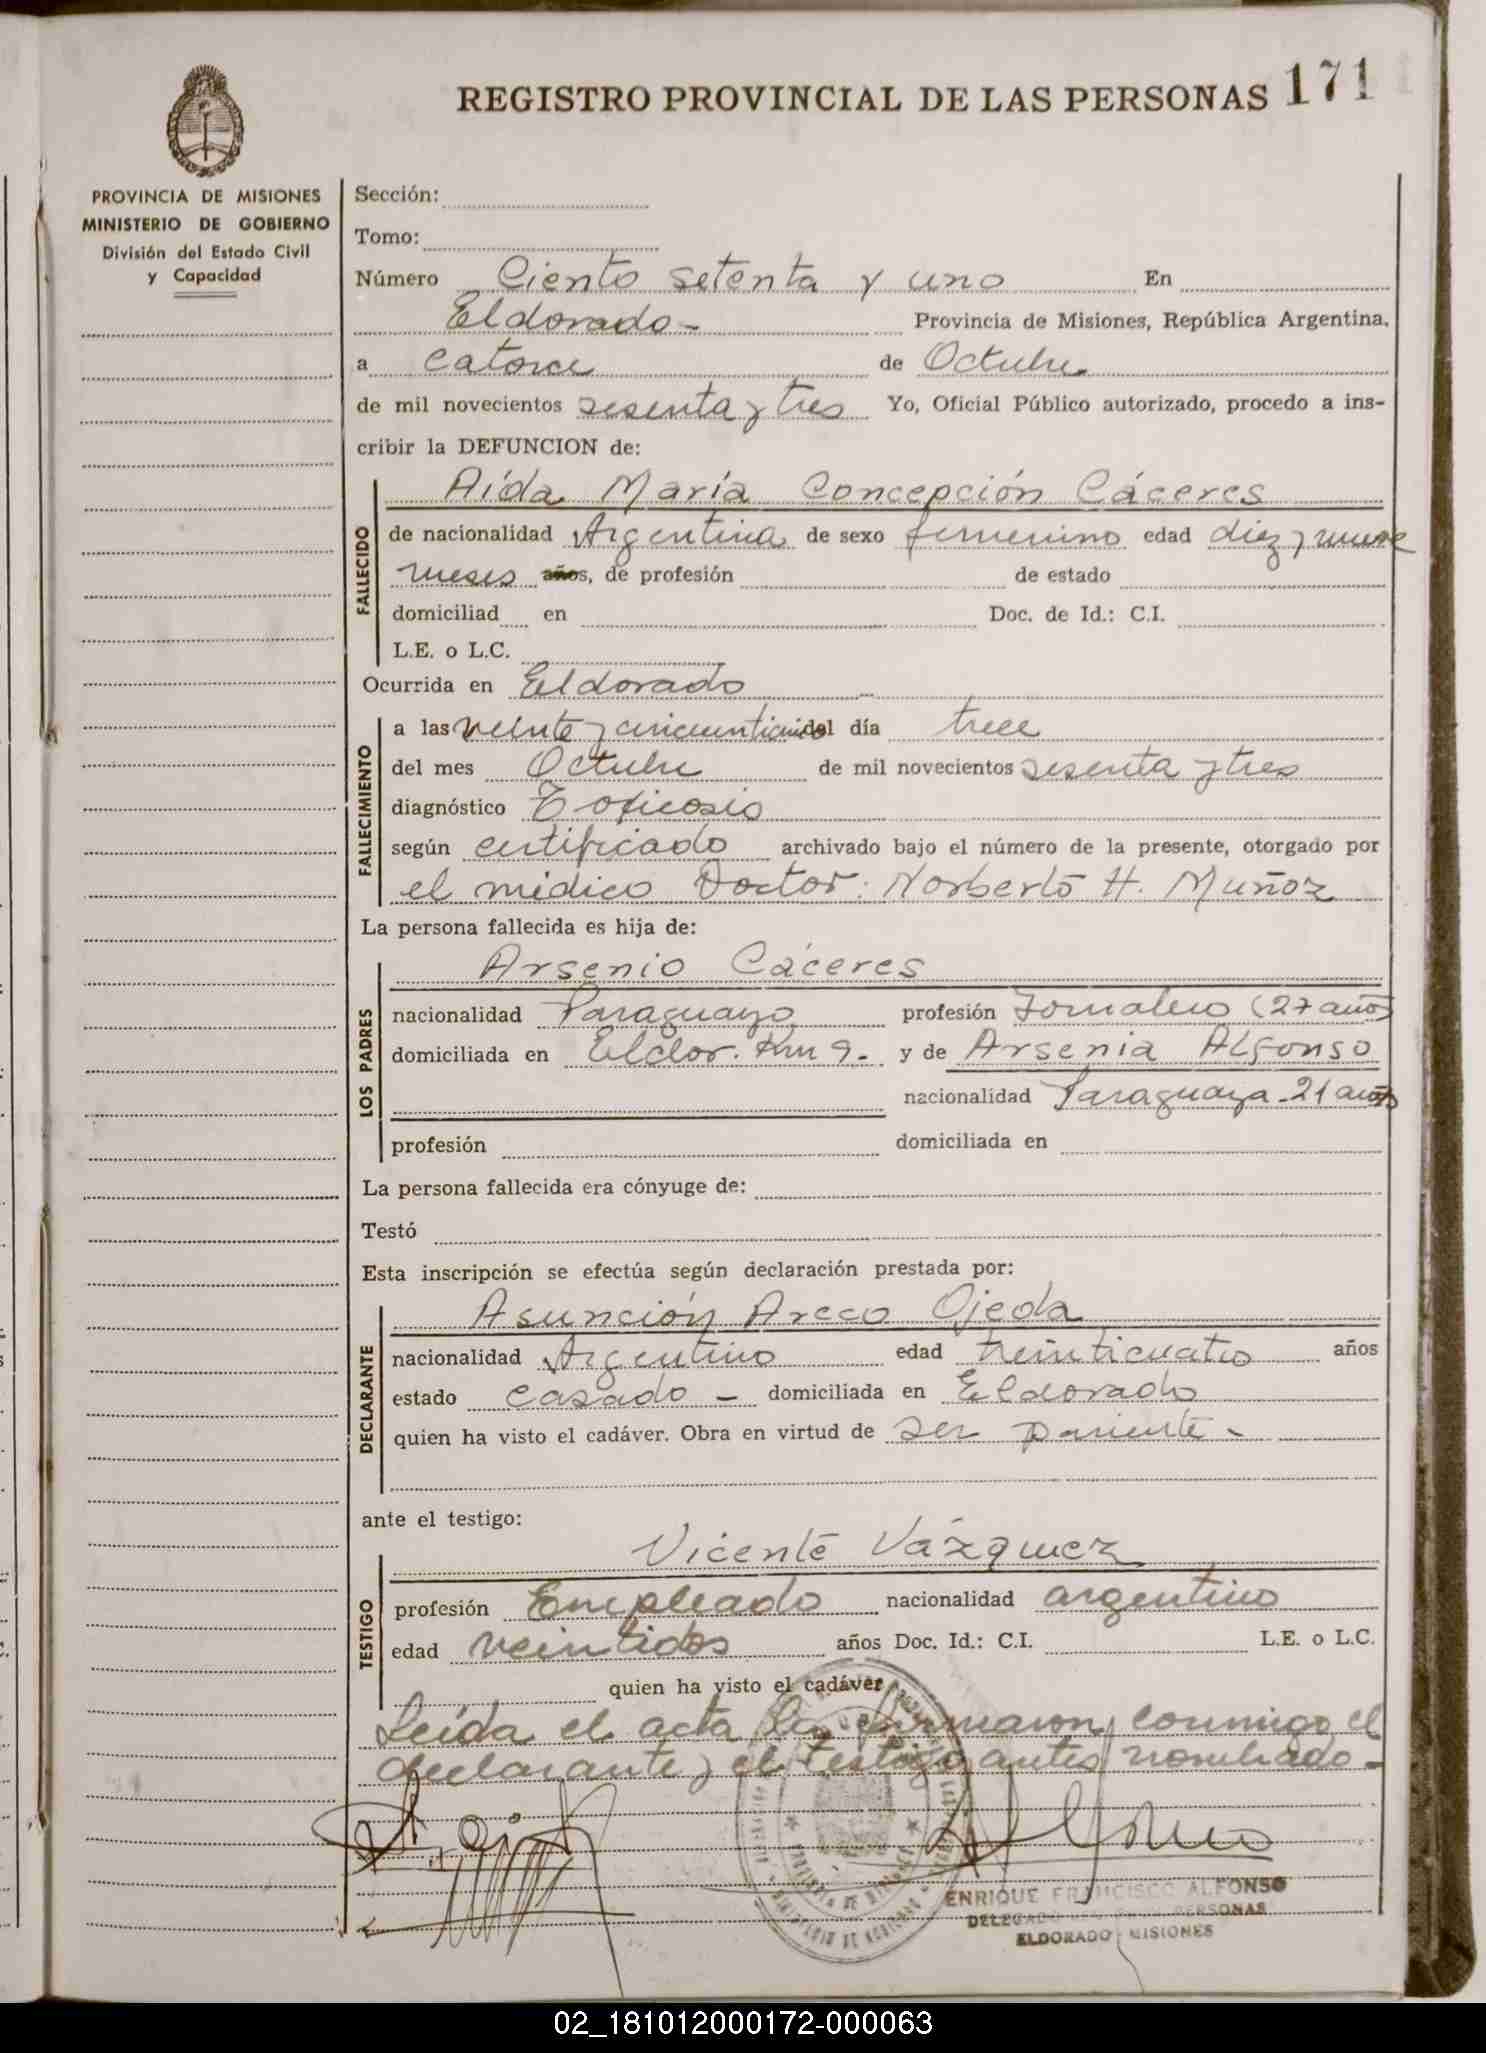 REGISTRO PROVINCIAL DE LAS PERSONAS 171
PROVINCIA DE MISIONES
MINISTERIO DE GOBIERNO
División del Estado Civil
y Capacidad
Sección:
Tomo:
Número Ciento setenta y uno En
Eldorado- Provincia de Misiones, República Argentina,
a catorce de Octubre
de mil novecientos sesenta y tres Yo, Oficial Público autorizado, procedo a ins-
cribir la DEFUNCION de:
FALLECIDO
Aída María Concepción Cáceres
de nacionalidad Argentina de sexo femenino edad diez y nueve
meses años, de profesión de estado
domiciliad en Doc. de Id.: C.I.
L.E. o L.C.
Ocurrida en Eldorado
FALLECIMIENTO
a las veinte y del día trece
del mes Octubre de mil novecientos sesenta y tres
diagnóstico Toxicosis
según certificado archivado bajo el número de la presente, otorgado por
el médico Doctor: Norberto H. Muñoz
La persona fallecida es hija de:
LOS PADRES
Arsenio Cáceres
nacionalidad Paraguayo profesión Jornalero (27 años)
domiciliada en Eldor. Km 9.- y de Arsenia Alfonso
nacionalidad Paraguaya-21 años
profesión domiciliada en
La persona fallecida era cónyuge de:
Testó
Esta inscripción se efectúa según declaración prestada por:
DECLARANTE
Asunción Areco Ojeda
nacionalidad Argentino edad treinticuatro años
estado casado - domiciliada en Eldorado
quien ha visto el cadáver. Obra en virtud de ser pariente -
ante el testigo:
TESTIGO
Vicente Vázquez
profesión Empleado nacionalidad argentino
edad veintidos años Doc. Id.: C.I. L.E. o L.C.
quien ha visto el cadáver
Leída el acta la firmaron conmigo el
declarante y el testigo antes nombrado.-
ENRIQUE FRANCISCO ALFONSO
PERSONAS
ELDORADO - MISIONES
02_181012000172-000063